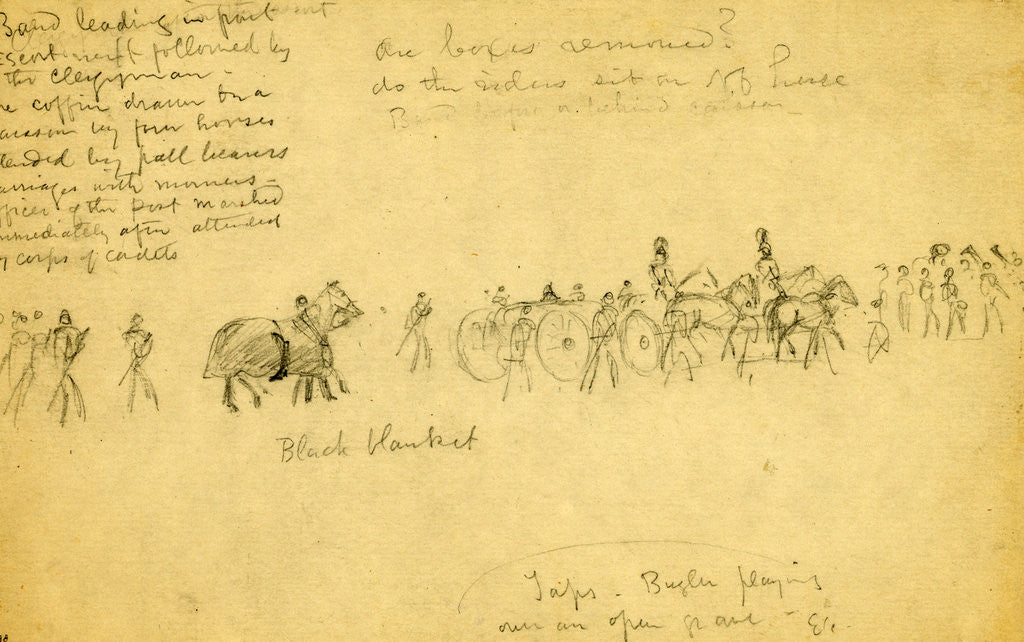 Band leading in front
Escort next followed by
the Clergyman -
coffin drawn on a
caisson by four horses
attended by pall bearers
carriages with mourners -
officers of the post marched
immediately after attended
by corps of cadets
Are boxes removed?
do the riders sit on off horse
Band before or behind caisson
Black blanket
Taps - Bugler playing
over an open grave - &c.